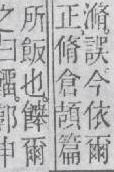 滫誤今依爾
正。脩倉頡篇
所飯也。饙爾
之曰郭申